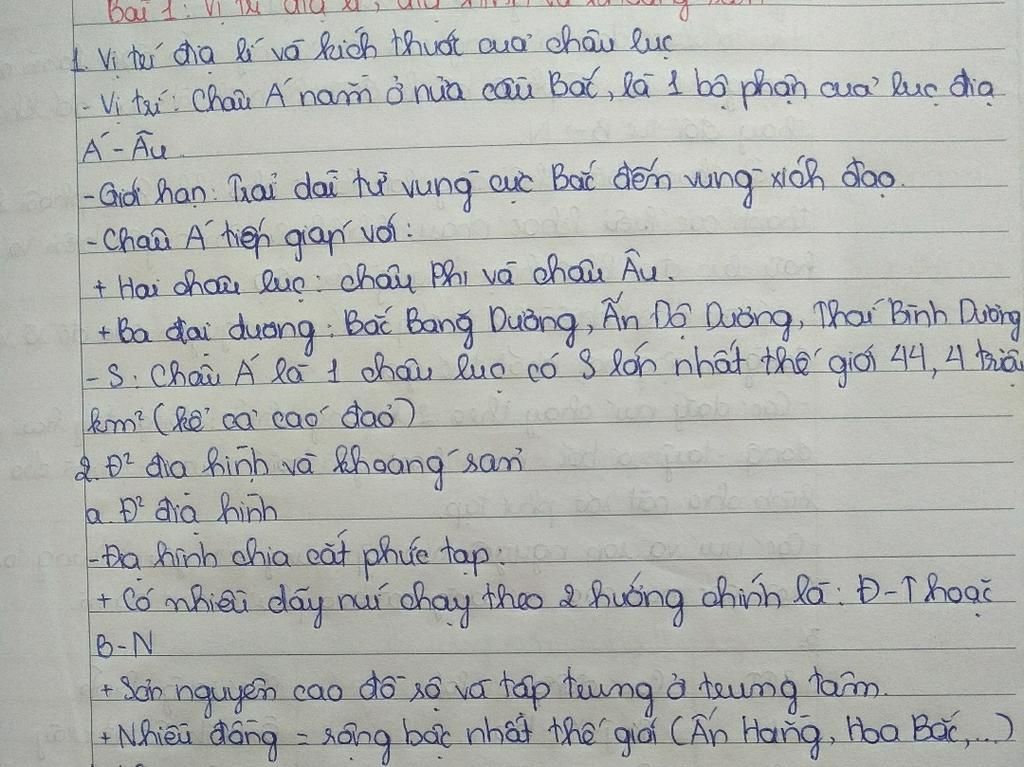 Bài 1: Vị trí địa lí, địa hình và khoáng sản
1. Vị trí địa lí và kích thước của châu lục
- Vị trí: Châu Á nằm ở nửa cầu Bắc, là 1 bộ phận của lục địa
Á - Âu
- Giới hạn: Trải dài từ vùng cực Bắc đến vùng xích đạo.
- Châu Á tiếp giáp với:
+ Hai châu lục: châu Phi và châu Âu.
+ Ba đại dương: Bắc Băng Dương, Ấn Độ Dương, Thái Bình Dương
- S: Châu Á là 1 châu lục có S lớn nhất thế giới 44,4 triệu
km² (kể cả các đảo)
2. Đ² địa hình và khoáng sản
a. Đ² địa hình
- Địa hình chia cắt phức tạp:
+ Có nhiều dãy núi chạy theo 2 hướng chính là: Đ-T hoặc
B-N
+ Sơn nguyên cao đồ sộ và tập trung ở trung tâm.
+ Nhiều đồng = rộng bậc nhất thế giới (Ấn Hằng, Hoa Bắc,...)